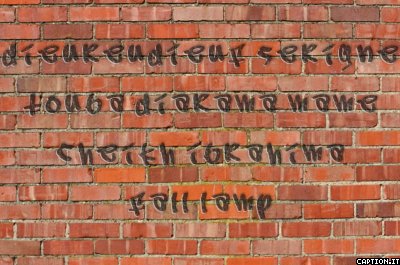 dieureudieuf serigne
touba diarama mame
cheikh ibrahima
fall lamp
CAPTION.IT